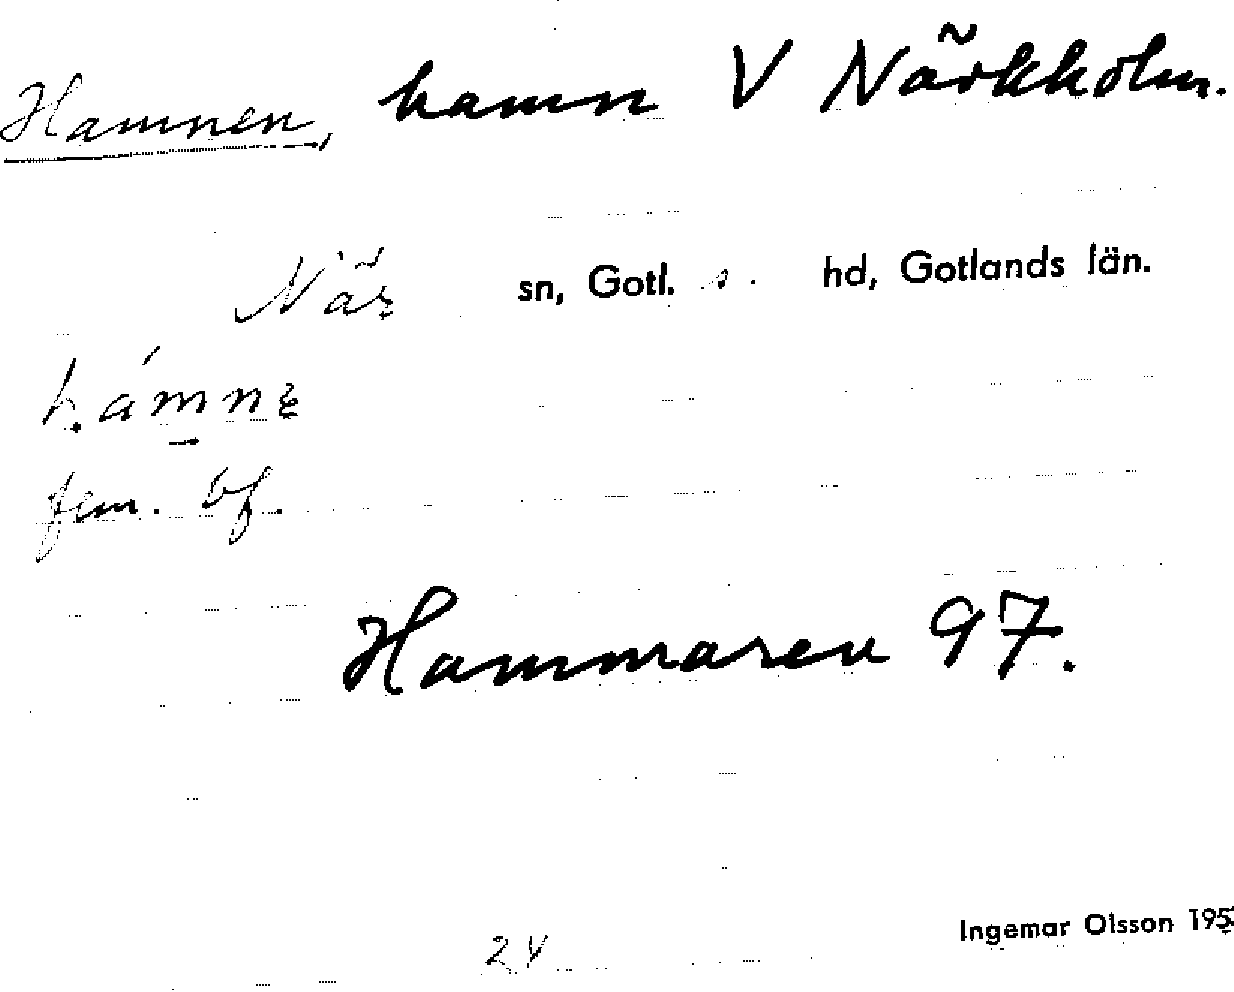 Hamnen, hamn V Närkholm.
När sn, Gotl. s. hd, Gotlands län.
fem. bf.
Hammaren 97.
24
Ingemar Olsson 195